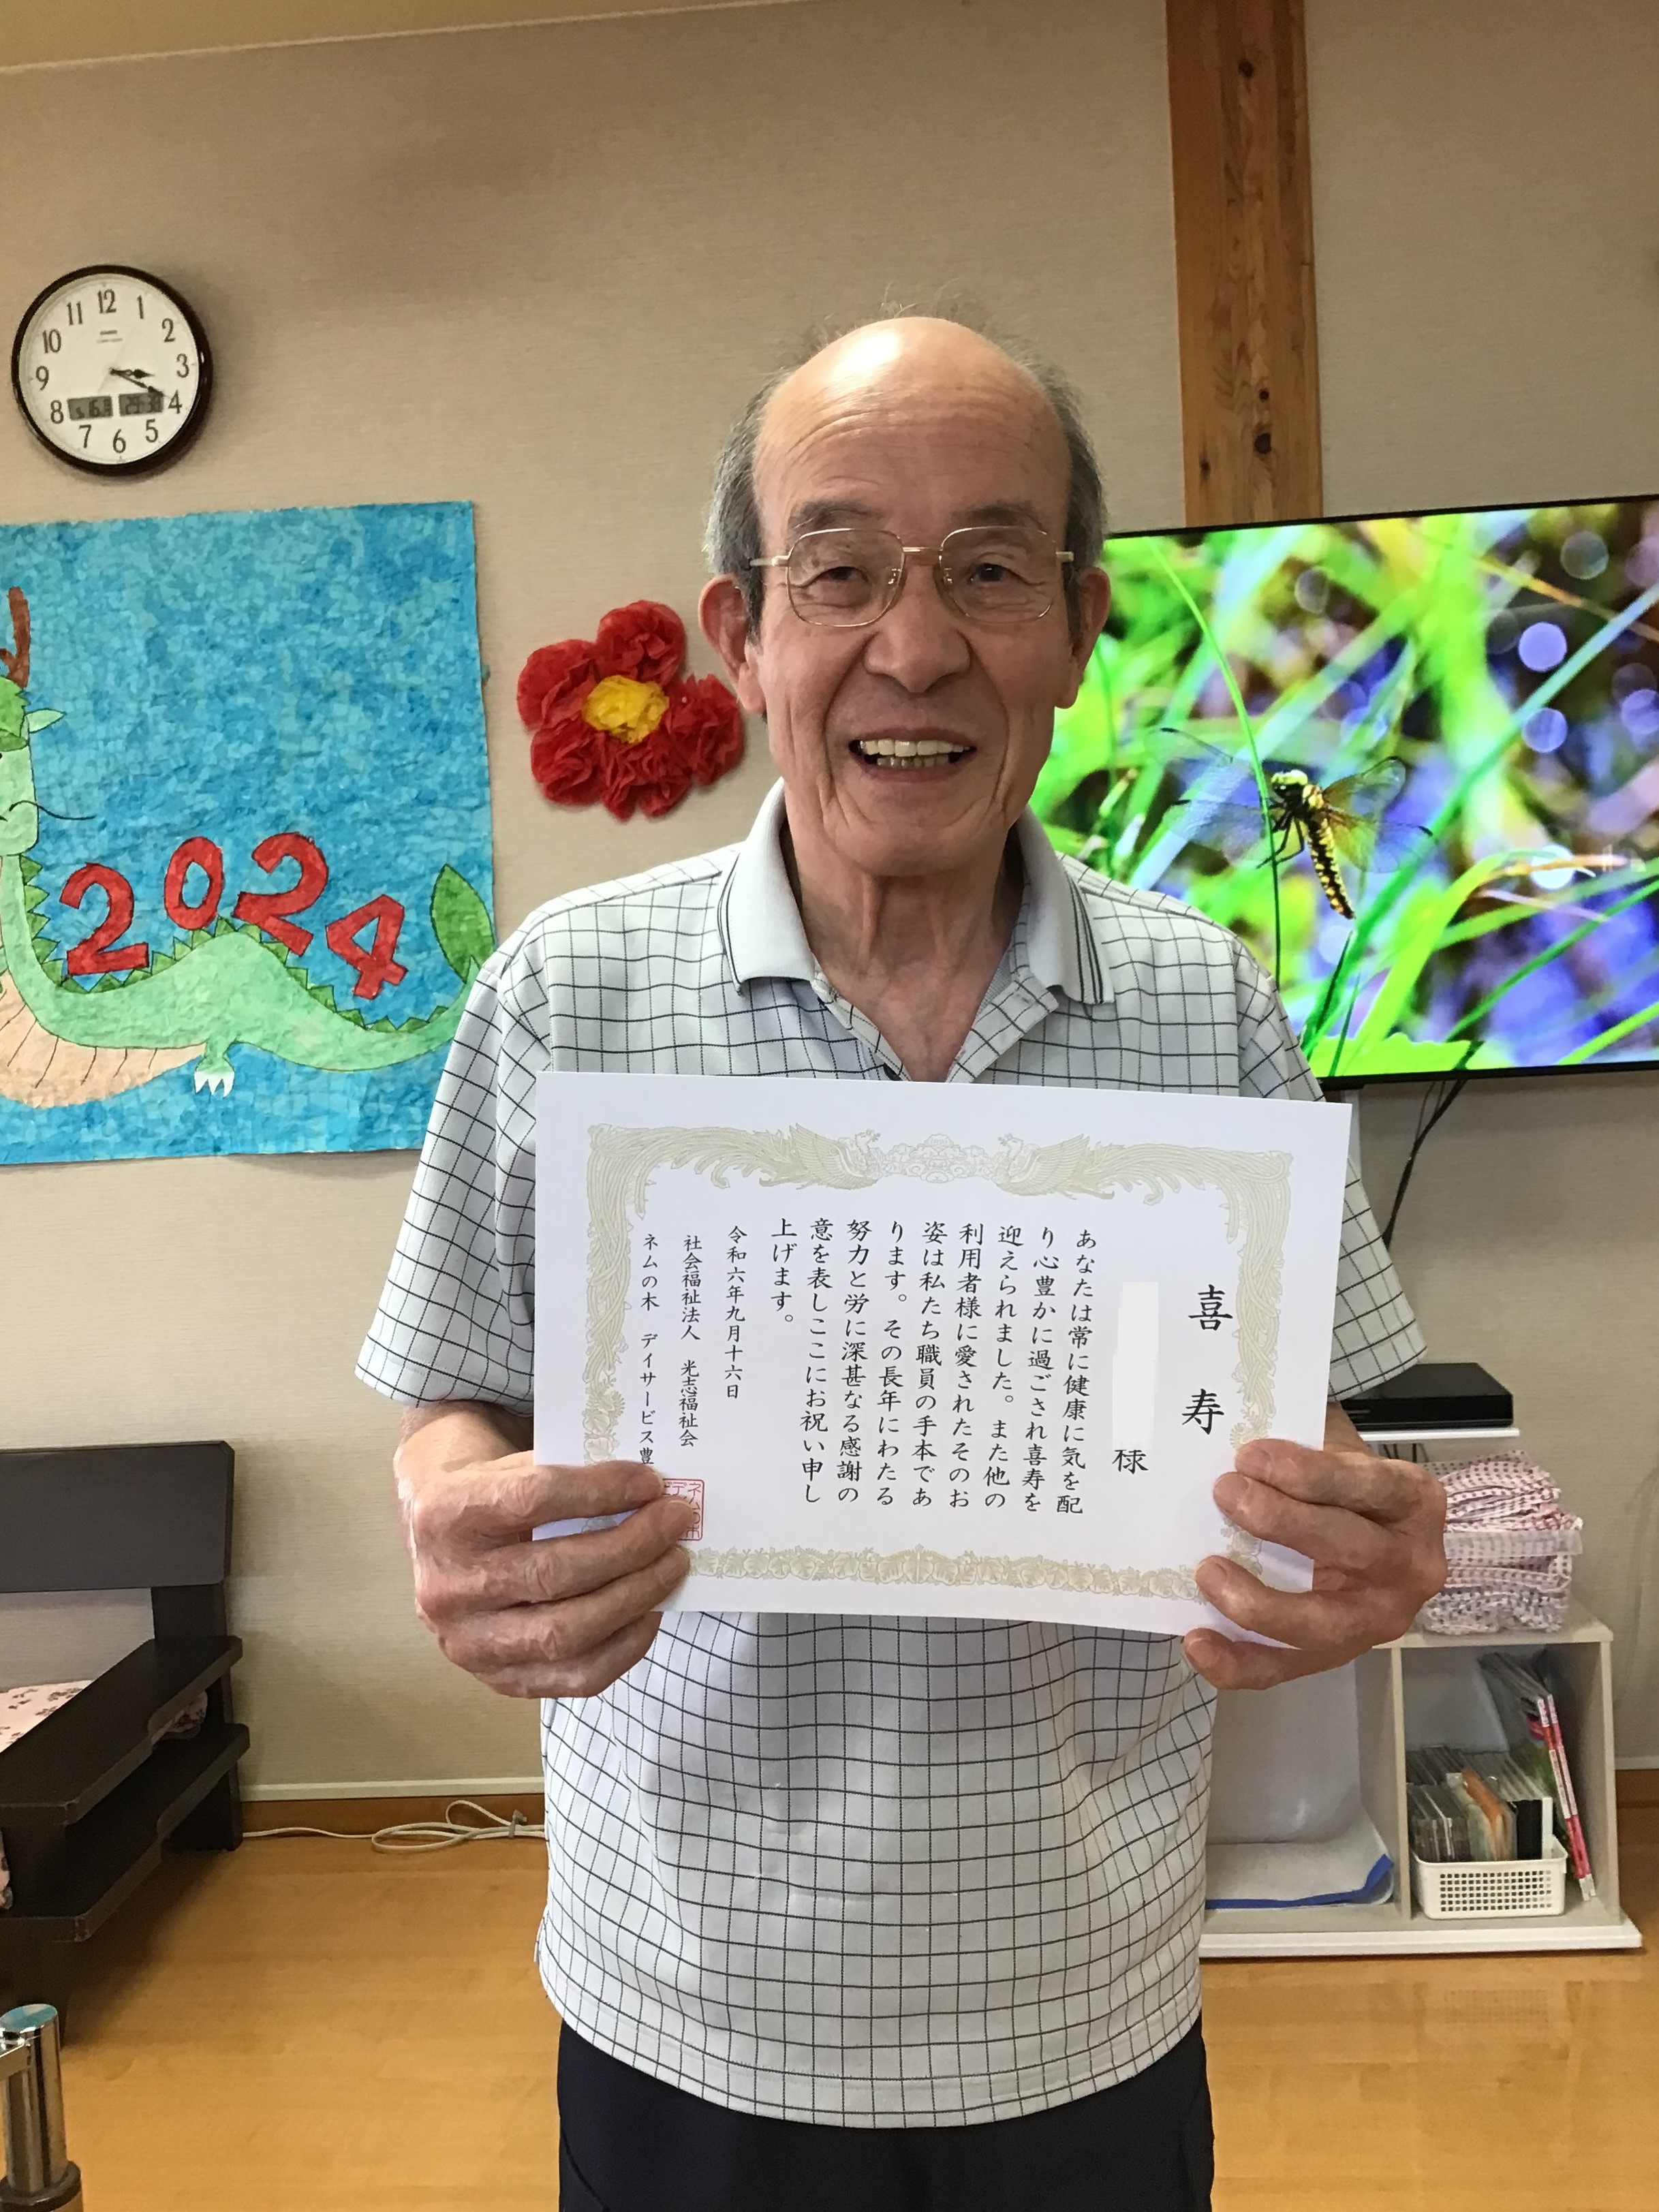 喜寿
様
あなたは常に健康に気を配
り心豊かに過ごされ喜寿を
迎えられました。また他の
利用者様に愛されたそのお
姿は私たち職員の手本であ
ります。その長年にわたる
努力と労に深甚なる感謝の
意を表しここにお祝い申し
上げます。
令和六年九月十六日
社会福祉法人 光志福祉会
ネムの木 デイサービス豊
2024
12
1
2
3
4
5
6
7
8
9
10
11